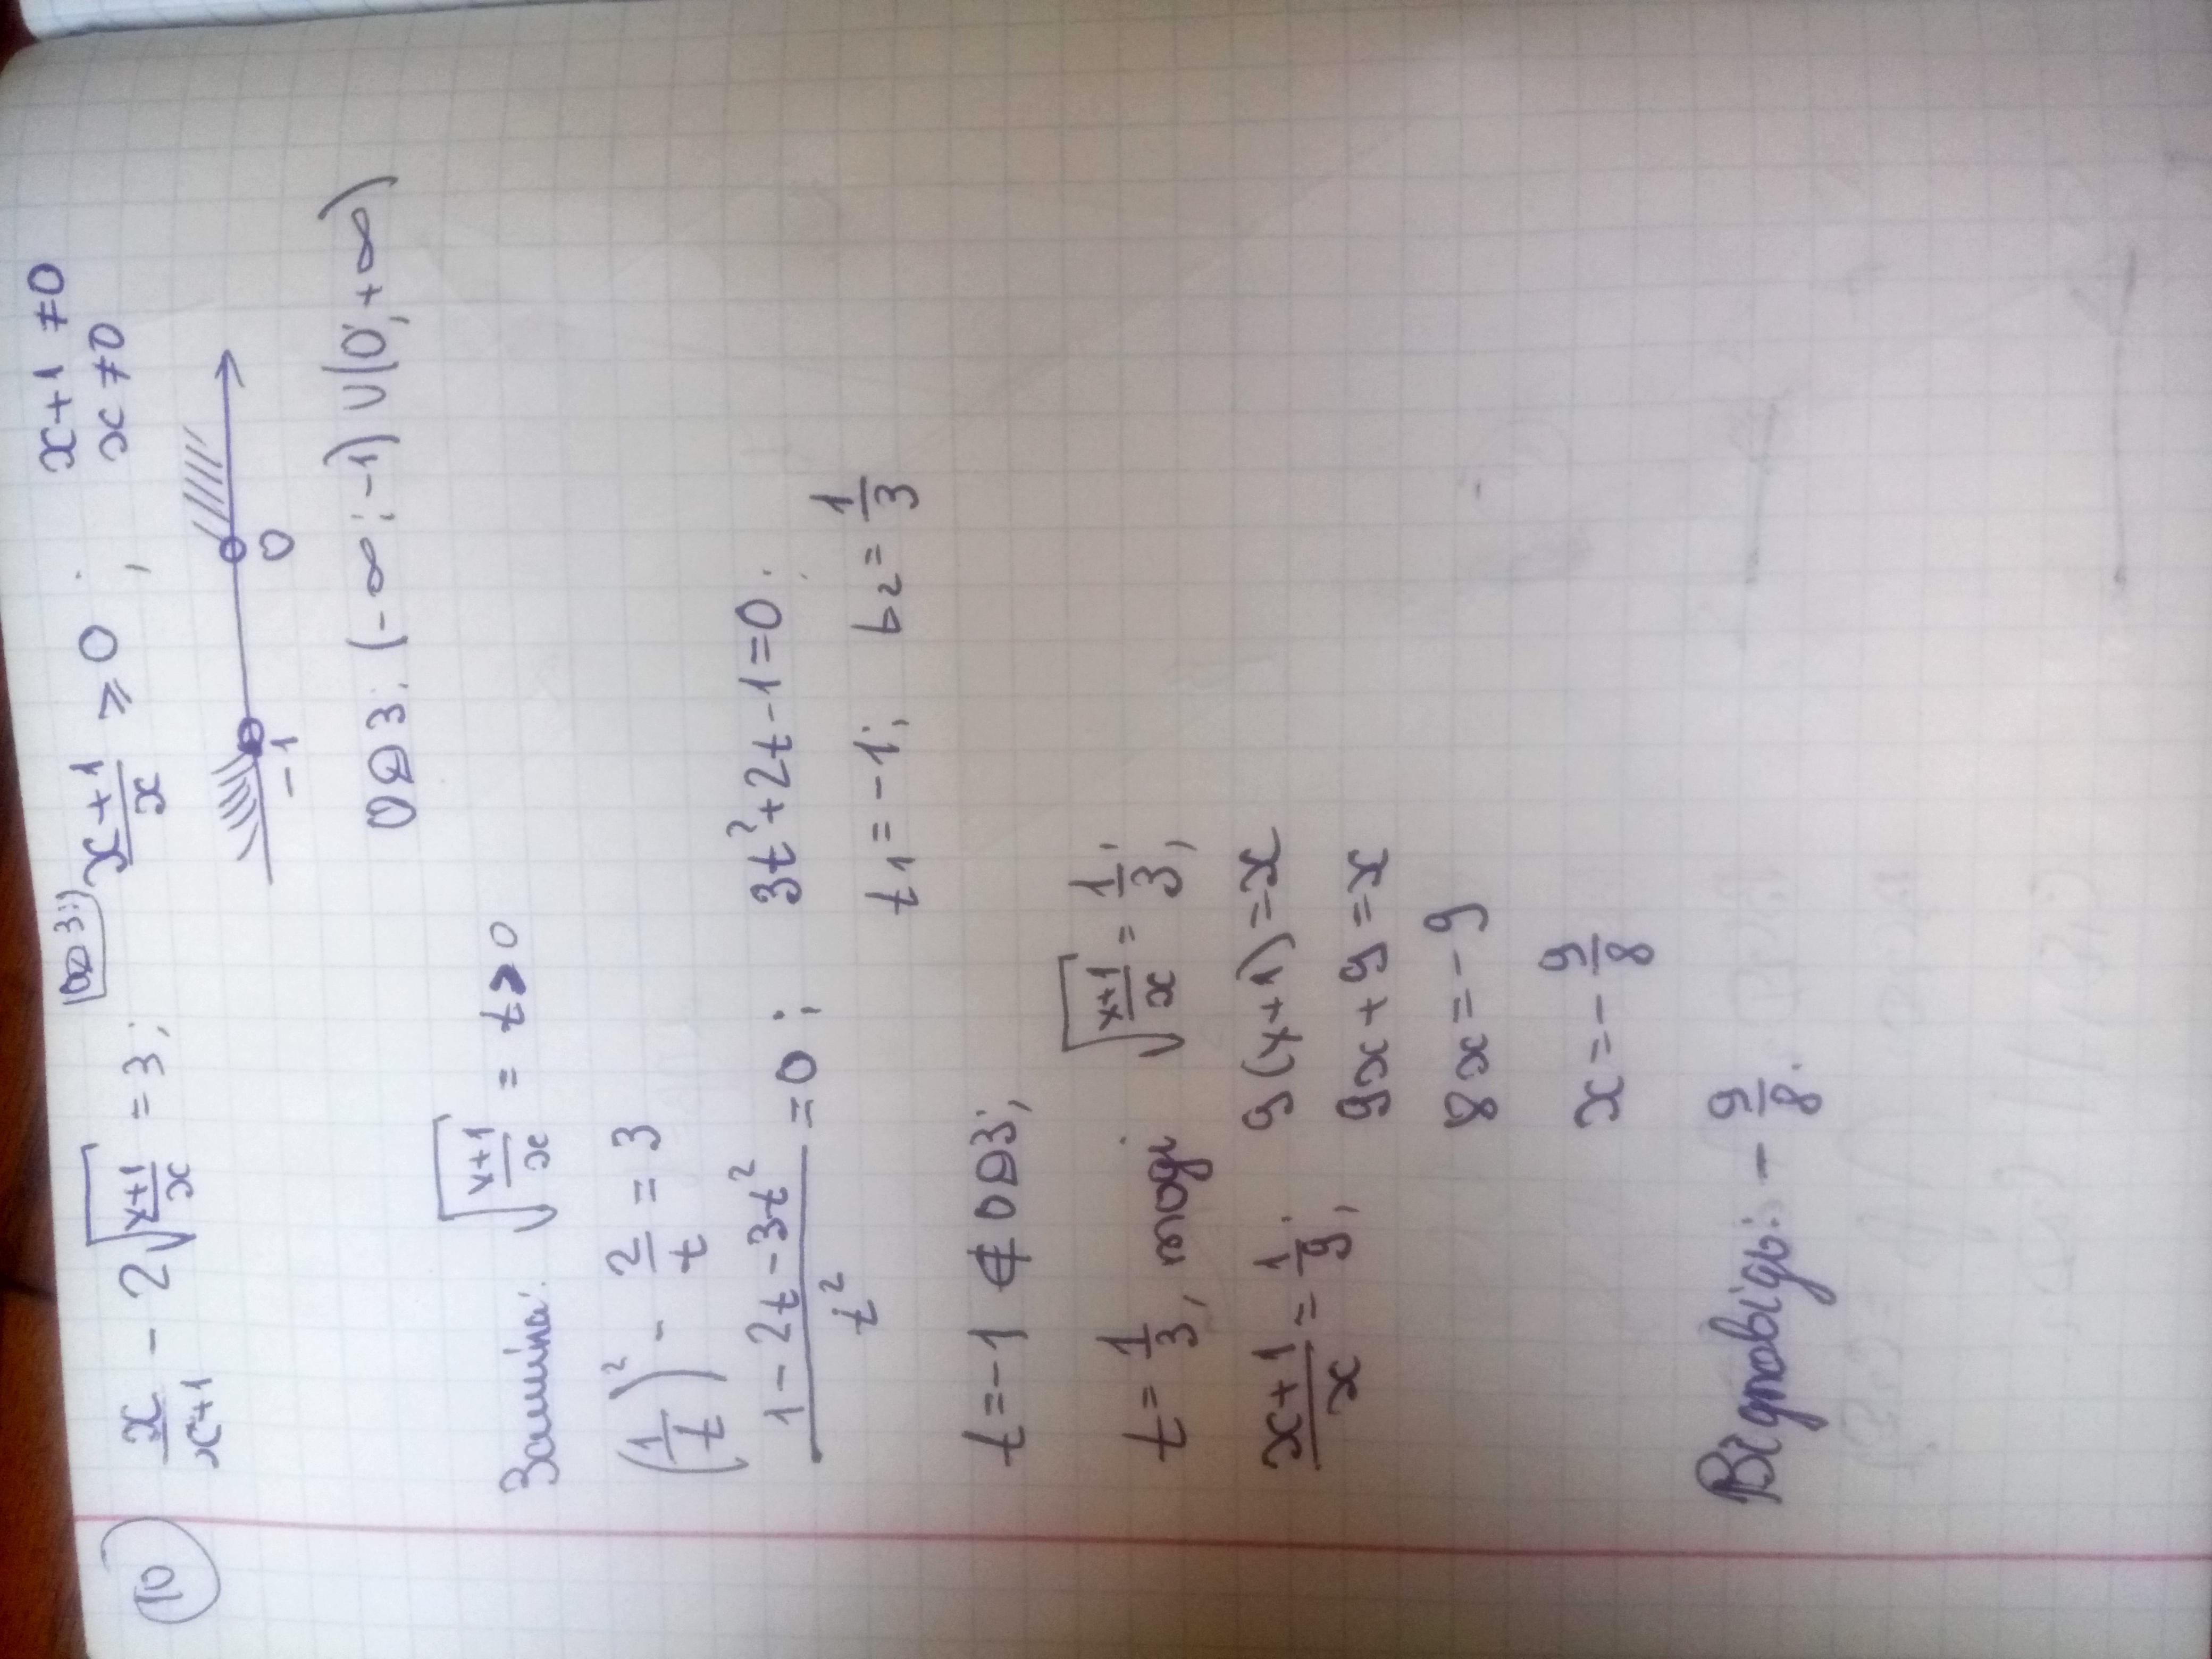 10 x/(x+1) - 2√((x+1)/x) = 3; ОДЗ: (x+1)/x ≥ 0; x+1 ≠ 0
x ≠ 0
-1 0
ОДЗ: (-∞; -1) ∪ (0; +∞)
Заміна: √((x+1)/x) = t > 0
(1/t)² - 2/t = 3
(1 - 2t - 3t²)/t² = 0; 3t² + 2t - 1 = 0;
t₁ = -1; t₂ = 1/3
t = -1 ∉ ОДЗ;
t = 1/3, тоді √((x+1)/x) = 1/3;
(x+1)/x = 1/9; 9(x+1) = x
9x + 9 = x
8x = -9
x = -9/8
Відповідь: -9/8.